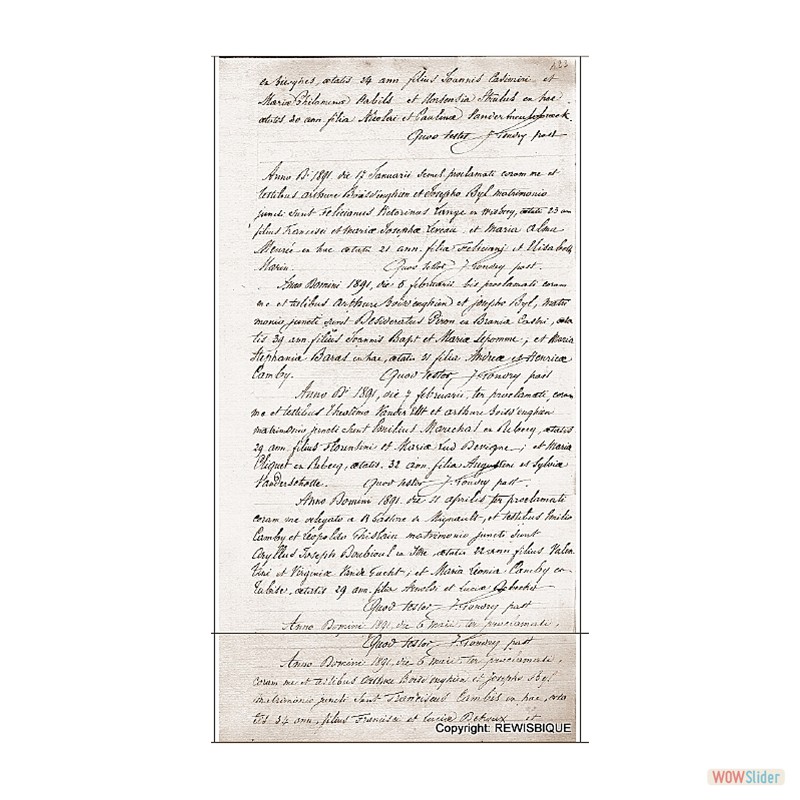 433
en Bierghes, ætatis 24 ann filius Joannis Casimiri et
Mariæ Philomenæ Habils et Hortensia Stralus en hac
ætatis 20 ann filia Nicolai et Paulinæ Vandermeulebroek.
Quod testor J. Goudry past
Anno Dⁱ 1891 die 17 Januarii semel proclamati coram me et
testibus Arthuro Boisdinghien et Josepho Byl matrimonio
juncti sunt Felicianus Victorinus Lange en Wisbecq, ætatis 23 ann
filius Francisci et Mariæ Josephæ Leveau et Maria Alma
Meurée en hac ætatis 21 ann. filia Feliciani et Elisabeth
Marin. Quod testor J. Goudry past.
Anno Domini 1891, die 6 februarii bis proclamati coram
me et testibus Arthuro Boisdenghien et Josepho Byl, matri
monio juncti sunt Desideratus Peron en Brania Castri, æta
tis 39 ann. filius Joannis Bapt et Mariæ Lepomme, et Maria
Stephania Baras en hac, ætatis 21 filia Andreæ et Henricæ
Camby. Quod testor J. Goudry past
Anno Dⁱ 1891, die 7 februarii, ter proclamati, coram
me et testibus Theotimo Vander Elst et Arthuro Boisd'enghien
matrimonio juncti sunt Emilius Marechal en Rebecq, ætatis
29 ann. filius Florentini et Mariæ Lud Devigne, et Maria
Cliquet en Rebecq, ætatis 32 ann. filia Augustini et Sylviæ
Vanderschotte. Quod testor J. Goudry past.
Anno Domini 1891 die 21 aprilis ter proclamati
coram me delegato a R Pastore de Mignault, et testibus Emilio
Camby et Leopoldo Ghislain matrimonio juncti sunt
Cyrillus Joseph Doubioul en Ittre ætatis 22 ann filius Valen
tini et Virginiæ Vande Gucht, et Maria Leonia Camby en
Tubise, ætatis 29 ann. filia Arnoldi et Luciæ
Quod testor J. Goudry past
Anno Domini 1891, die 6 maii ter proclamati,
Quod testor J. Goudry past
Anno Domini 1891, die 6 maii ter proclamati,
coram me et testibus Arthuro Boisd'enghien et Josepho Byl
matrimonio juncti sunt Franciscus Cambis en hac, æta
tis 34 ann, filius Francisci et Luciæ Deroux et
Copyright: REWISBIQUE
WOWSlider